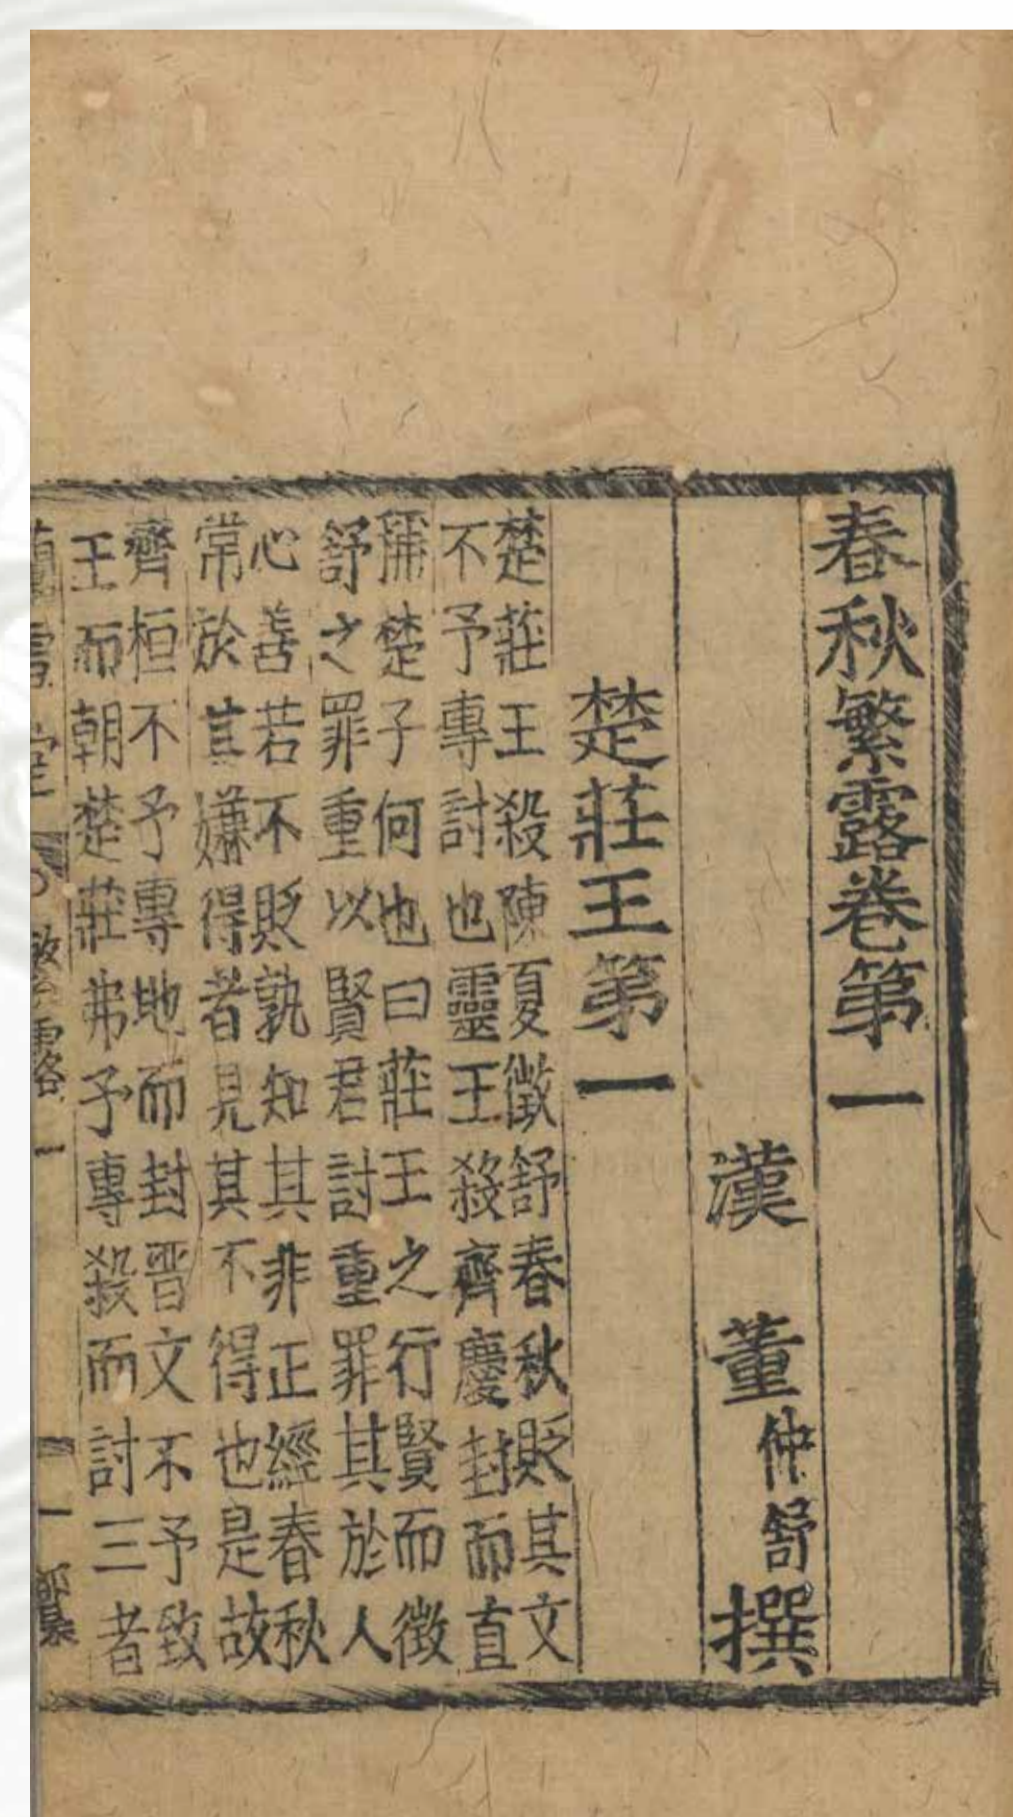 春秋繁露卷第一
漢 董仲舒撰
楚莊王第一
楚莊王殺陳夏徵舒春秋貶其文
不予專討也靈王殺齊慶封而直
稱楚子何也曰莊王之行賢而徵
舒之罪重以賢君討重罪其於人
心善若不貶孰知其非正經春秋
常於其嫌得者見其不得也是故
齊桓不予專地而封晋文不予致
王而朝楚莊弗予專殺而討三者